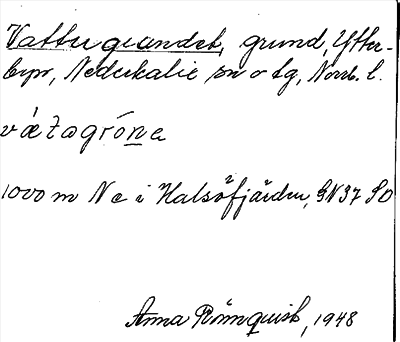 Vattugrundet, grund, Ytter-
byn, Nederkalix sn o tg, Norrb. l.
vát̄agróne
1000 m N e i Halsöfjärden, GN37 SO
Anna Rönnquist, 1948